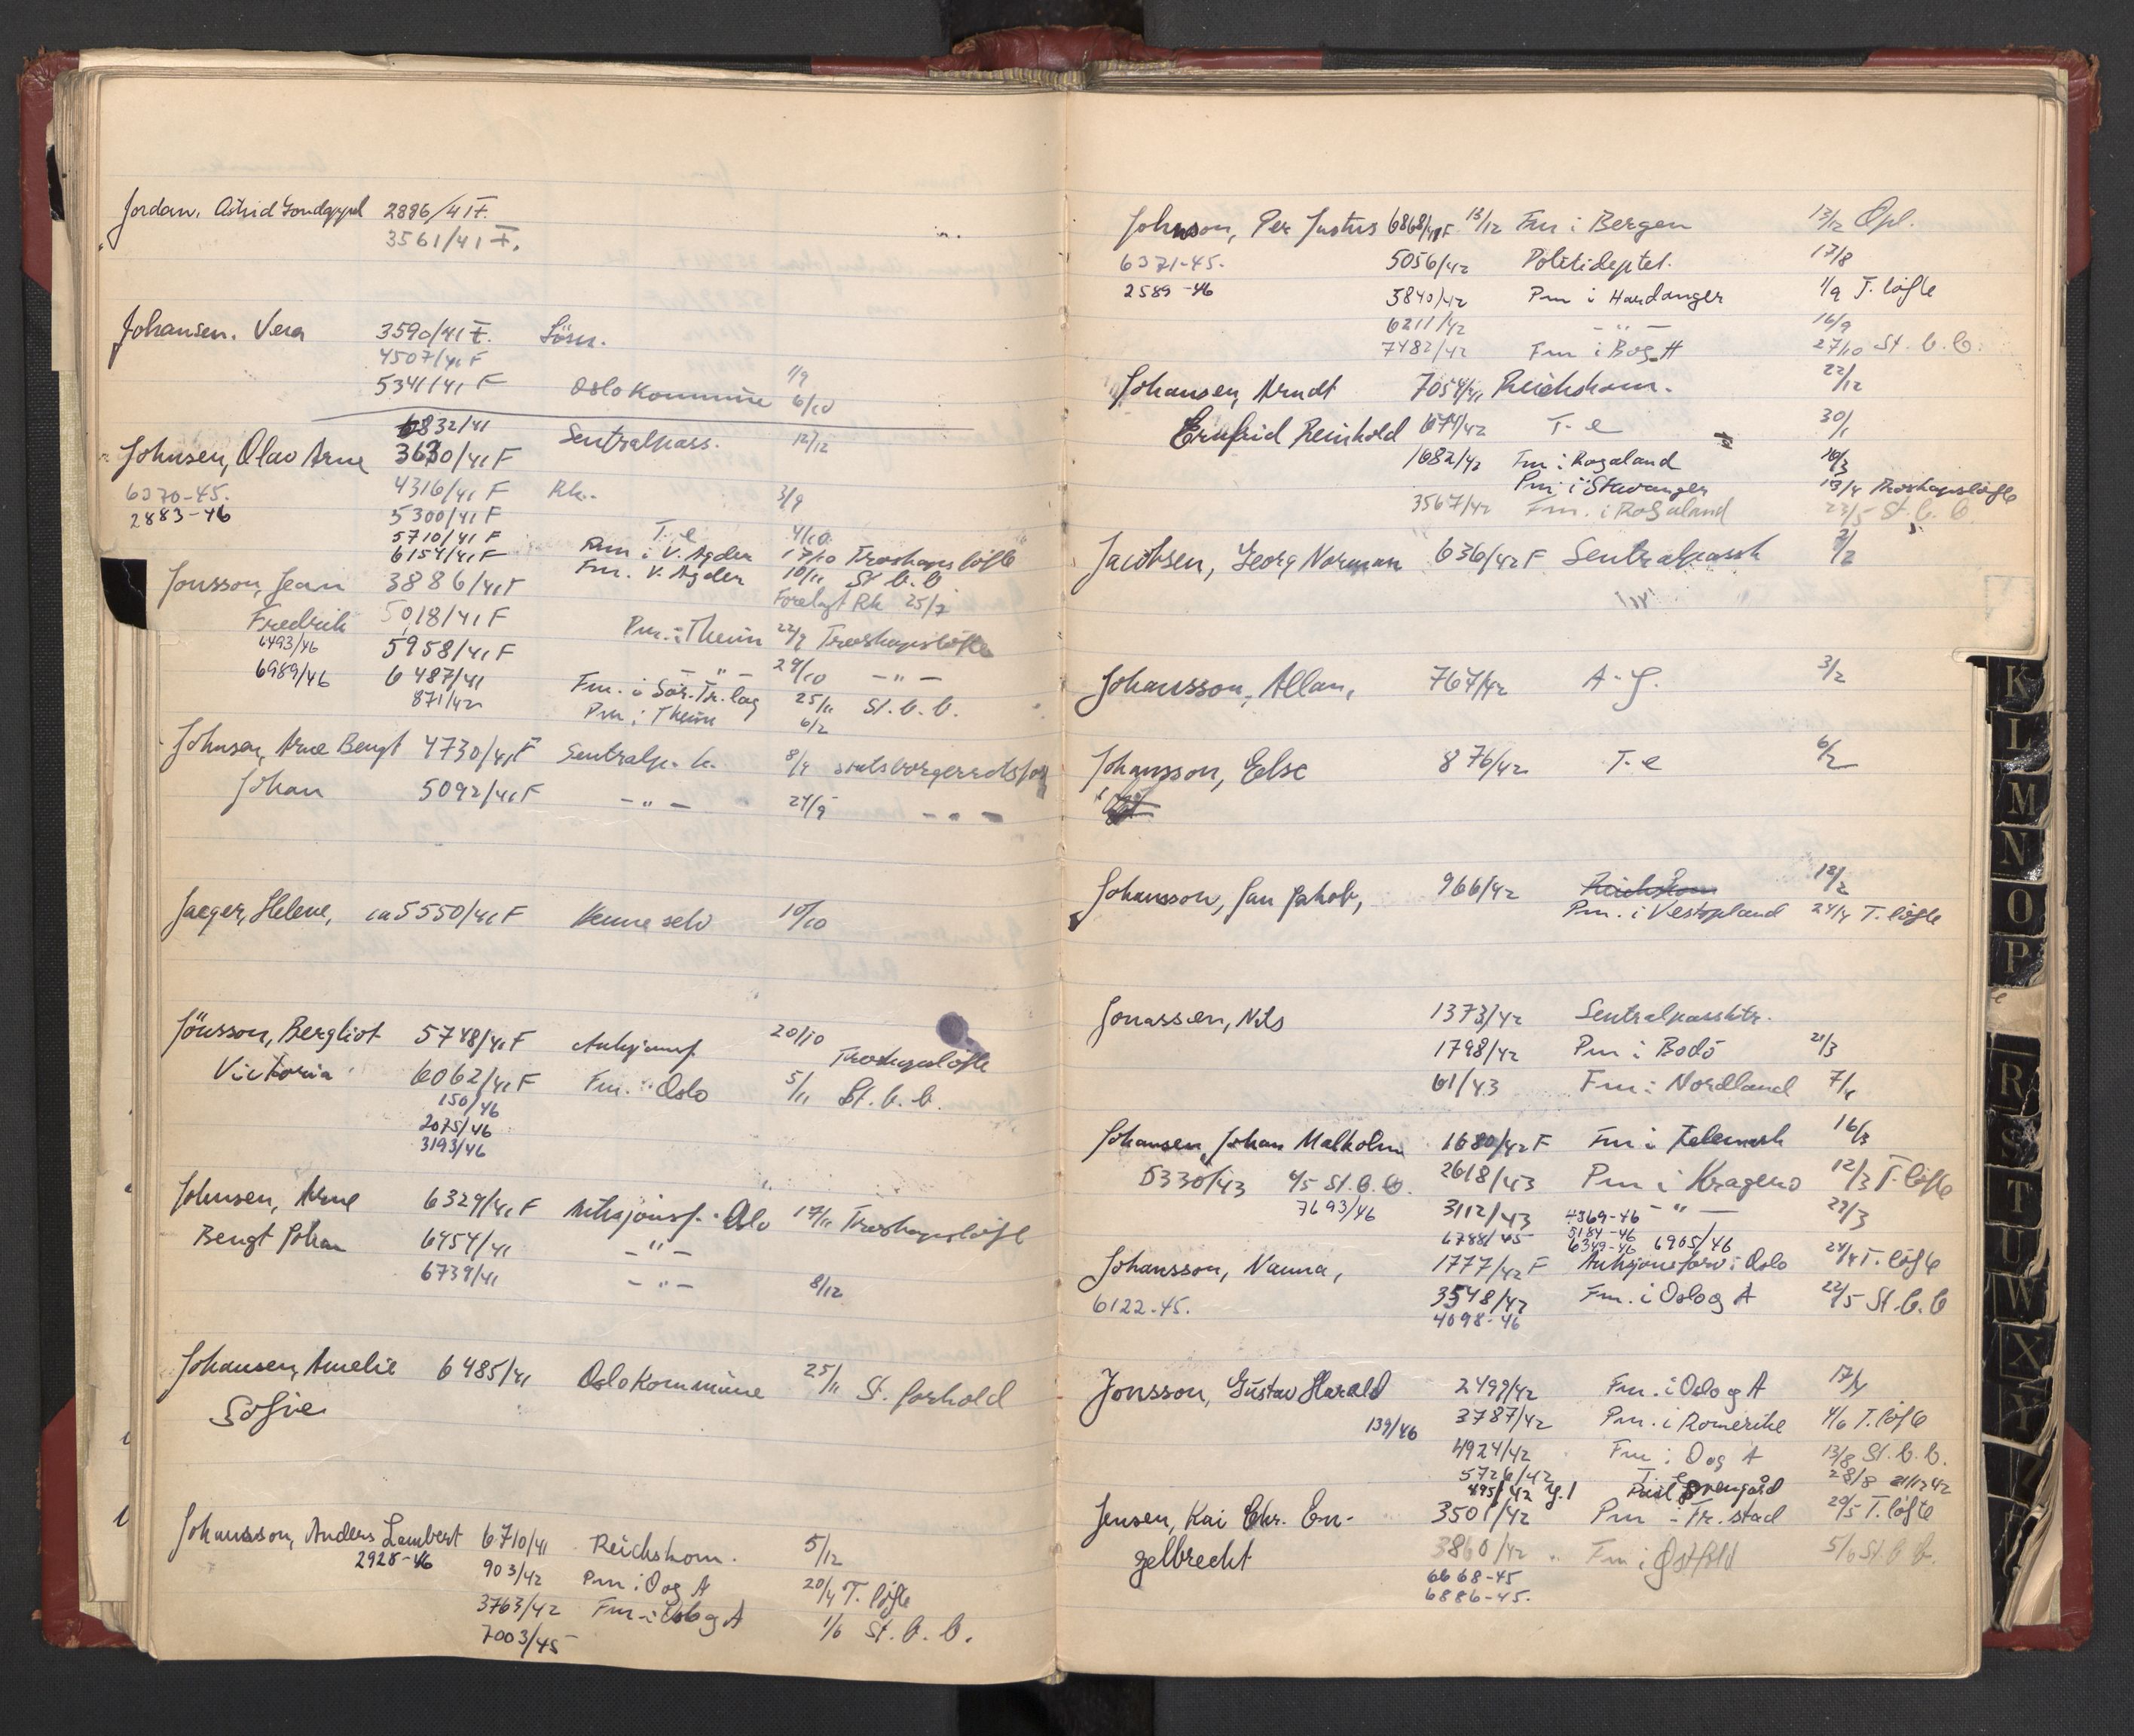 Jordan, Astrid 2896/41 F.
3561/41 F.
Johansen, Vera 3590/41 F. Lösn.
4507/41 F 1/9
5341/41 F Oslo Kommune 6/10
6832/41 Sentralpass. 12/12
Johnsen, Olav Arne 3630/41 F
6370-45. 4316/41 F Rk. 3/9
2883-46 5300/41 F
5710/41 F T. e 4/10
6154/41 F Pm i V. Agder 17/10 Troskapsløfte
Fm. V. Agder 10/11 St. b. b
Jonsson, Jean 3886/41 F Forelagt Rk 25/7
Fredrik 5018/41 F Pm. i Theim 22/9 Troskapsløfte
6493/46 5958/41 F - " - 29/10 - " -
6989/46 6487/41 Fm. i Sör-Tr.lag 25/11 St. b. b.
871/42 Pm i Theim 6/2
Johnsen, Arne Bengt 4730/41 F Sentralp. k. 8/9 statsborgerretsfor
Johan 5092/41 F - " - 24/9 - " -
Jaeger, Helene, ca 5550/41 F Henne selv 10/10
Jönsson, Bergliot 5748/41 F Auksjonsf. 20/10 Troskapsløfte
Victoria 6062/41 F Fm. i Oslo 5/11 St. b. b.
150/46
2075/46
3193/46
Johnsen, Arne 6329/41 F Auksjonsf. i Oslo 17/11 Troskapsløfte
Bengt Johan 6454/41 - " -
6739/41 - " - 8/12
Johansen, Amelie 6485/41 Oslo Kommune 25/11 St. forhold
Sofie
Johansson, Anders Lambert 6710/41 Reichskom. 5/12
2928-46 903/42 Pm i O og A 20/4 T. løfte
3763/42 Fm i Oslo og A 1/6 St. b. b.
7003/45
Johnson, Per Justus 6868/41 F 13/12 Fm i Bergen 13/12 Opl.
6371-45. 5056/42 Politideptet. 17/8
2589-46 5840/42 Pm i Hardanger 1/9 T. løfte
6211/42 - " - 16/9
7482/42 Fm i B og H 27/10 St. b. b.
Johansen, Arndt 7054/41 Reichskom. 22/12
Ernfrid Reinhold 674/42 T. e 30/1
1682/42 Fm i Rogaland
Pm i Stavanger 13/4 Troskapsløfte
3567/42 Fm. i Rogaland 22/5 St. b. b
Jacobsen, Georg Norman 636/42 F Sentralpassk
Johansson, Allan, 764/42 A. J. 3/2
Johansson, Else 876/42 T. e 6/2
Johansson, Jan Jakob, 966/42 Reichskom 12/2
Pm. i Vestopland 24/4 T. løfte
Jonassen, Nils 1373/42 Sentralpassktr.
1798/42 Pm i Bodö 21/3
61/43 Fm i Nordland 7/1
Johansen, Johan Malkolm 1680/42 F Fm i Telemark 16/3
5330/43 4/5 St. b. b. 2618/43 Pm i Kragerø 12/3 T. løfte
7693/46 3112/43 4569-46 - " - 22/3
6788/45 5184-46
6349-46 6905/46
Johansson, Nanna, 1777/42 F Auksjonsforv. i Oslo 24/4 T. løfte
6122-45. 3548/42 Fm. i Oslo og A 22/5 St. b. b
4098-46
Jonsson, Gustav Harald 2499/42 Fm. i Oslo og A 17/4
139/46 3787/42 Pm. i Romerike 4/6 T. løfte
4924/42 Fm i O og A 13/8 St. b. b.
5726/42 T. e 28/8
895/42 Grengård
Jensen, Kai Chr. En- 3501/42 Pm i Fr. stad 20/5 T. løfte
gelbrecht 3860/42 Fm i Østfold 5/6 St. b b.
6668-45
6886-45.
K
L
M
N
O
P
R
S
T
U
W
X
Y